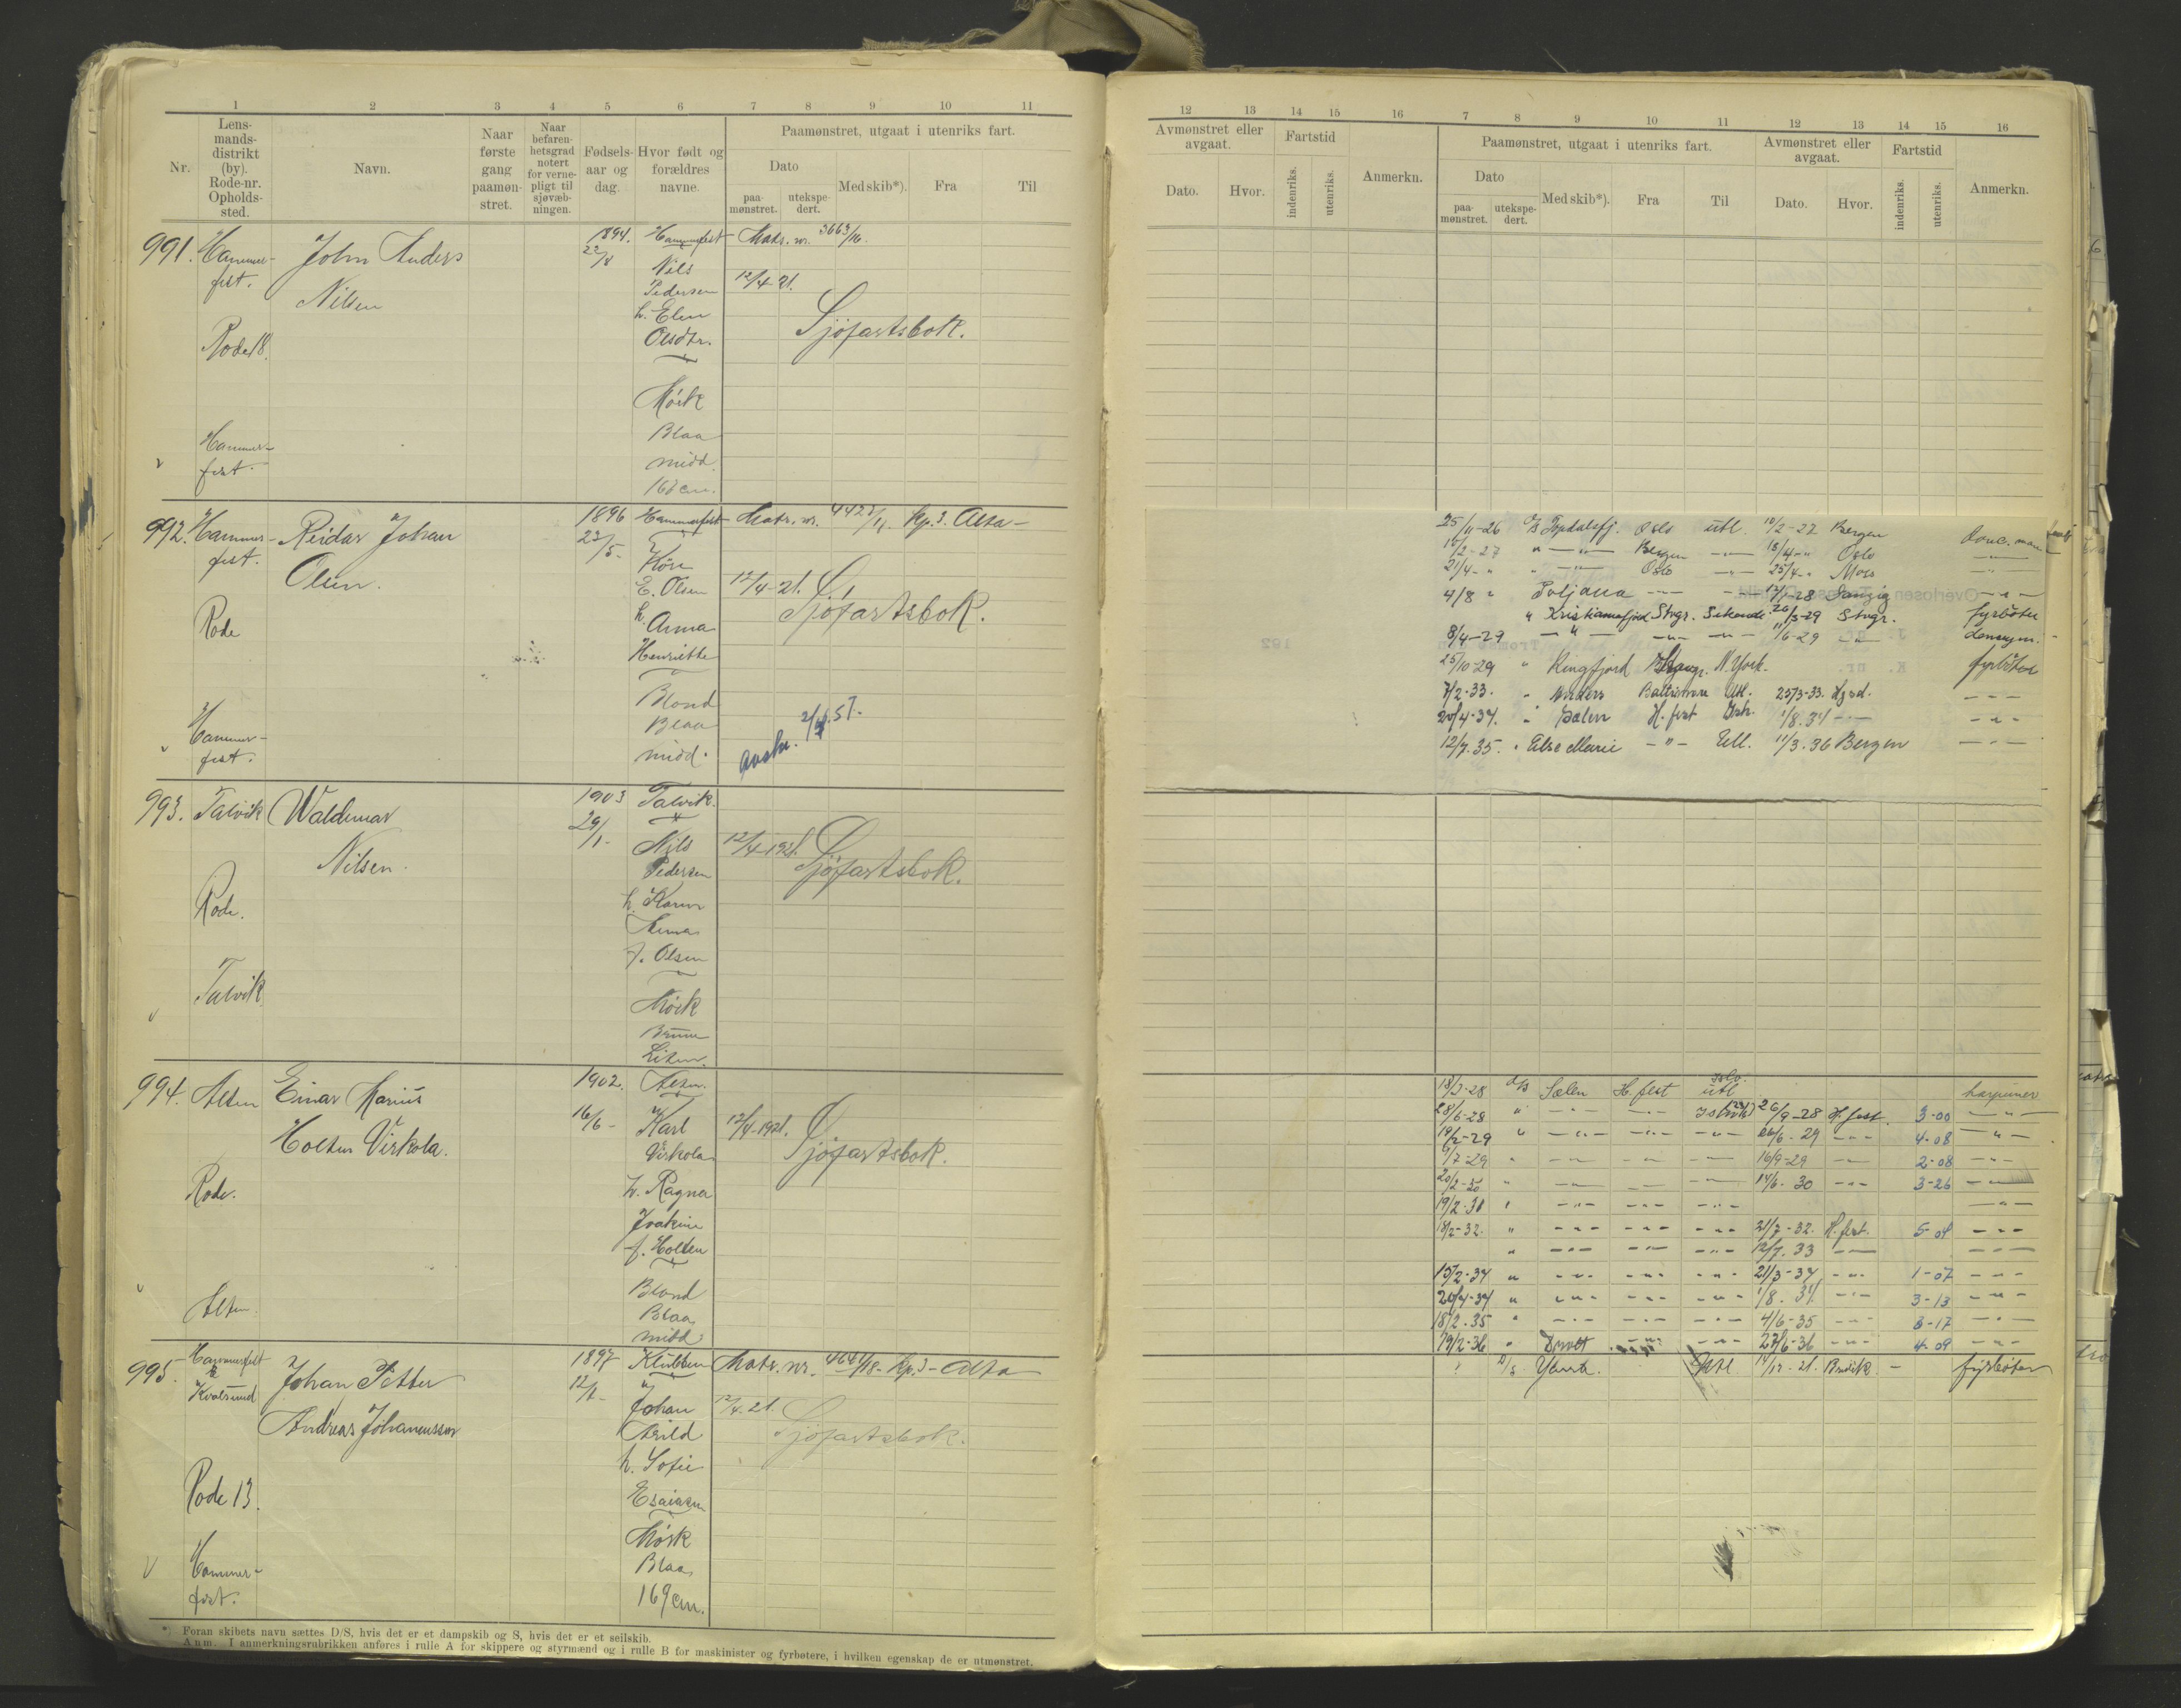 1 2 3 4 5 6 7 8 9 10 11
Nr.
Lens-
mands-
distrikt
(by).
Rode-nr.
Opholds-
sted.
Navn.
Naar
første
gang
paamøn-
stret.
Naar
befaren-
hetsgrad
notert
for verne-
pligt til
sjøvæb-
ningen.
Fødsels-
aar og
dag.
Hvor født og
forældres
navne.
Paamønstret, utgaat i utenriks fart.
Dato
paa-
mønstret.
utekspe-
dert.
Med skib*).
Fra
Til
991. Hammer-
fest.
Rode 18.
Hammer-
fest.
John Anders
Nilsen
1894.
23/4
Hammerfest
Nils
Pedersen
h. Elen
Olsdtr.
Mörk
Blaa
midd.
167 cm.
Matr. nr. 3663/16.
12/4 21.
Sjöfartsbok.
992. Hammer-
fest.
Rode
Hammer-
fest.
Reidar Johan
Olsen.
1896
23/5-
Hammerfest
E. Olsen
h. Anna
Henriette
Blond
Blaa
midd.
Matr. nr. Kp. 3. Alta-
12/4-21.
Sjöfartsbok.
993. Talvik
Rode.
Talvik
Waldemar
Nilsen.
1903
29/1-
Talvik.
Nils
Pedersen
h. Karen
Anna
f. Olsen
Mörk
Brune
Liten.
12/4-1921.
Sjöfartsbok.
994. Alten
Rode.
Alten.
Einar Marius
Holten Virkola.
1902.
16/6-
Alten.
Karl
Virkola
h. Ragna
Joakine
f. Holten
Blond
Blaa
midd.
12/4-1921.
Sjöfartsbok.
995. Hammerfest
Kvalsund
Rode 13.
Hammer-
fest.
Johan Petter
Andreas Johannessen
1897
12/1-
Johan
Arild
h. Sofie
Esaiasen
Mörk
Blaa
169 cm.
Matr. nr. Kp. 3- Alta
12/4-21.
Sjöfartsbok.
*) Foran skibets navn sættes D/S, hvis det er et dampskib og S, hvis det er et seilskib.
Anm. I anmerkningsrubrikken anføres i rulle A for skippere og styrmænd og i rulle B for maskinister og fyrbøtere, i hvilken egenskap de er utmønstret.
12 13 14 15 16 7 8 9 10 11 12 13 14 15 16
Avmønstret eller
avgaat.
Dato. Hvor.
Fartstid
indenriks. utenriks.
Anmerkn.
Paamønstret, utgaat i utenriks fart.
Dato
paa-
mønstret.
utekspe-
dert.
Med skib*). Fra Til
Avmønstret eller
avgaat.
Dato. Hvor.
Fartstid
indenriks. utenriks.
Anmerkn.
25/11-26 Topdalsfj. Oslo utl. Bergen
15/2-27 " — " — Bergen — " — 18/4-" Oslo — " —
21/4-" " — " — Oslo — " — 25/4-" Moss — " —
4/8 " Poljana
" Kristianiafjord Stvgr. 26/3-29 Stvgr. fyrböter
8/4-29 — " — — " — — " — 11/6-29 — " —
25/10-29 " Ringfjord N.York. fyrböter
7/2-33. " Baltimore Utl. 25/3-33. — " —
20/4-34. " Sælen H. fest Ish. 1/8.34 — " — — " —
12/7.35. " Else Marie — " — Utl. 11/3.36 Bergen — " —
18/3-28 d/s Sælen H. fest utl harpuner
28/6-28 " — " — — " — 26/9-28 H. fest. 3-00 — " —
19/2-29 " — " — — " — — " — 26/6-29 — " — 4-08 — " —
9/7-29 " — " — — " — — " — 16/9-29 — " — 2-08 — " —
20/2-30 " — " — — " — — " — 14/6-30 — " — 3-26 — " —
19/2-31 " — " — — " — — " — — " —
18/2-32. " — " — — " — — " — 21/7-32. H. fest. 5-04 — " —
" — " — — " — — " — 12/7.33 — " — — " —
15/2-34 " — " — — " — — " — 21/3-34 — " — 1-07 — " —
20/4-34 " — " — — " — — " — 1/8.34 — " — 3-13 — " —
18/2.35 " — " — — " — — " — 4/6-35 — " — 3-17 — " —
19/2-36 " — " — — " — 27/6-36 — " — 4-09 — " —
D/s fyrböter